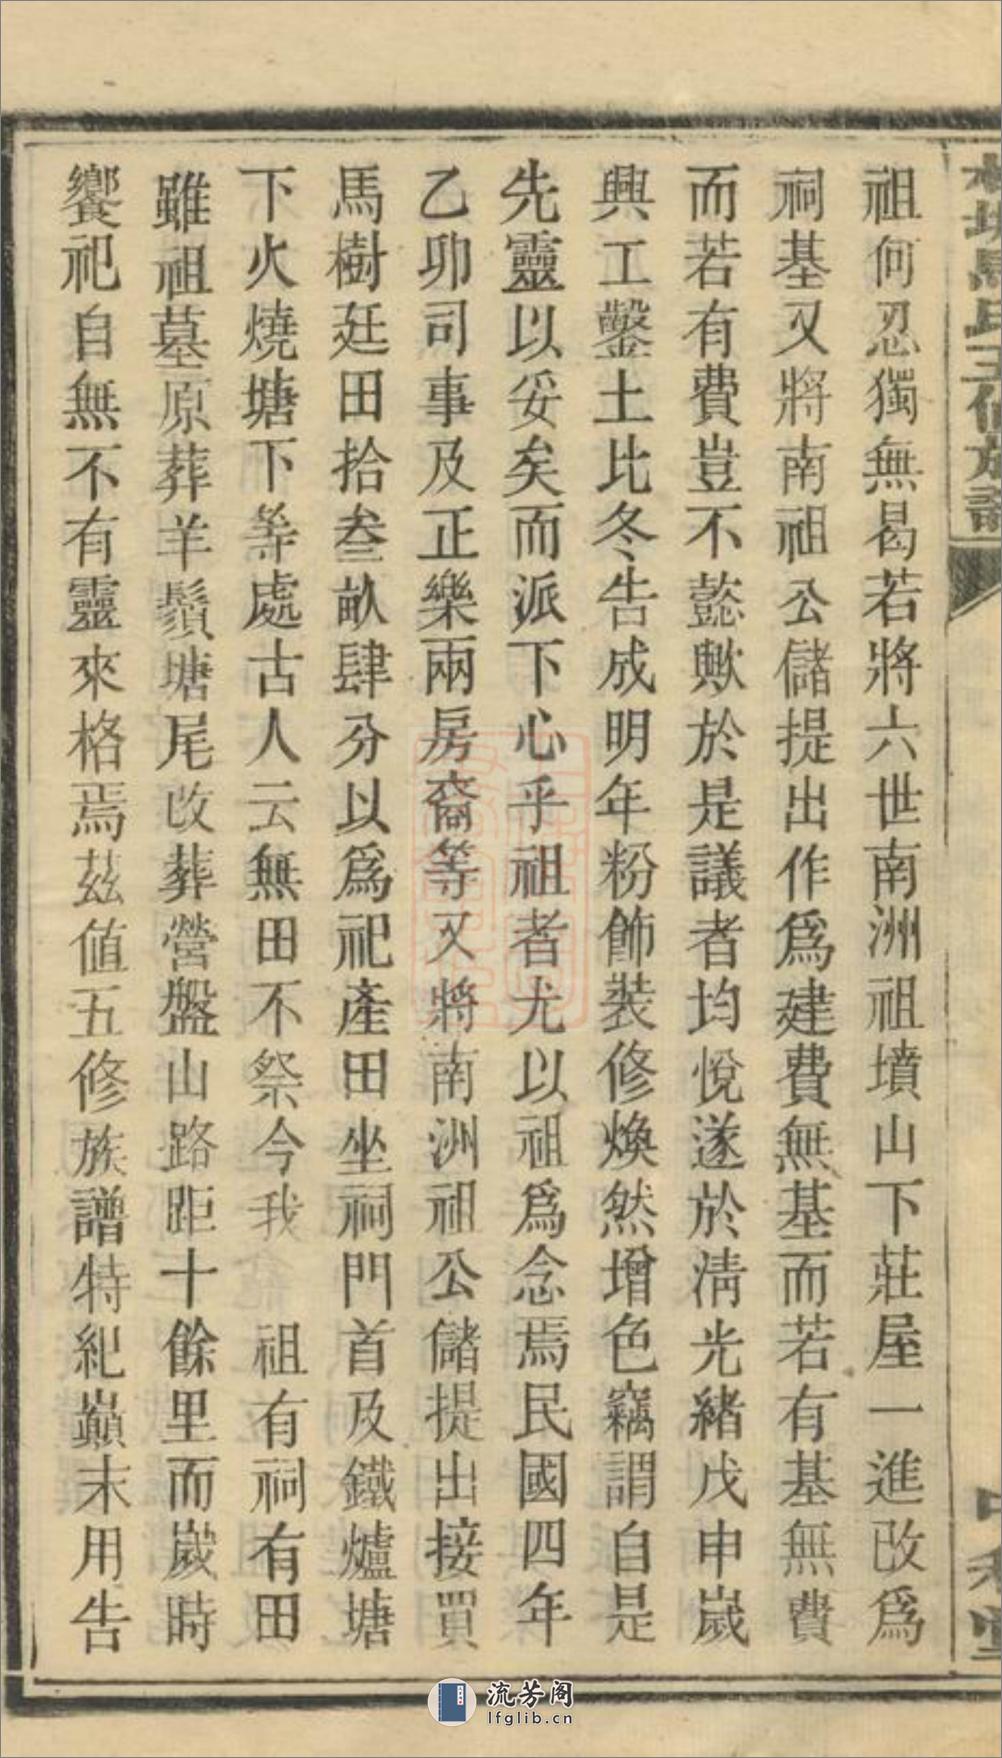 祖何忍獨無曷若將六世南洲祖墳山下莊屋一進改爲
祠基又將南祖公儲提出作爲建費無基而若有基無費
而若有費豈不懿歟於是議者均悅遂於淸光緒戊申歲
興工鑿土比冬告成明年粉飾裝修煥然增色竊謂自是
先靈以妥矣而派下心乎祖者尤以祖爲念焉民國四年
乙卯司事及正樂兩房裔等又將南洲祖公儲提出接買
馬樹廷田拾叁畝肆分以爲祀產田坐祠門首及鐵爐塘
下火燒塘下等處古人云無田不祭今我 祖有祠有田
雖祖墓原葬羊鬚塘尾改葬營盤山路距十餘里而歲時
饗祀自無不有靈來格焉茲値五修族譜特紀巔末用告
流芳阁
lfglib.cn